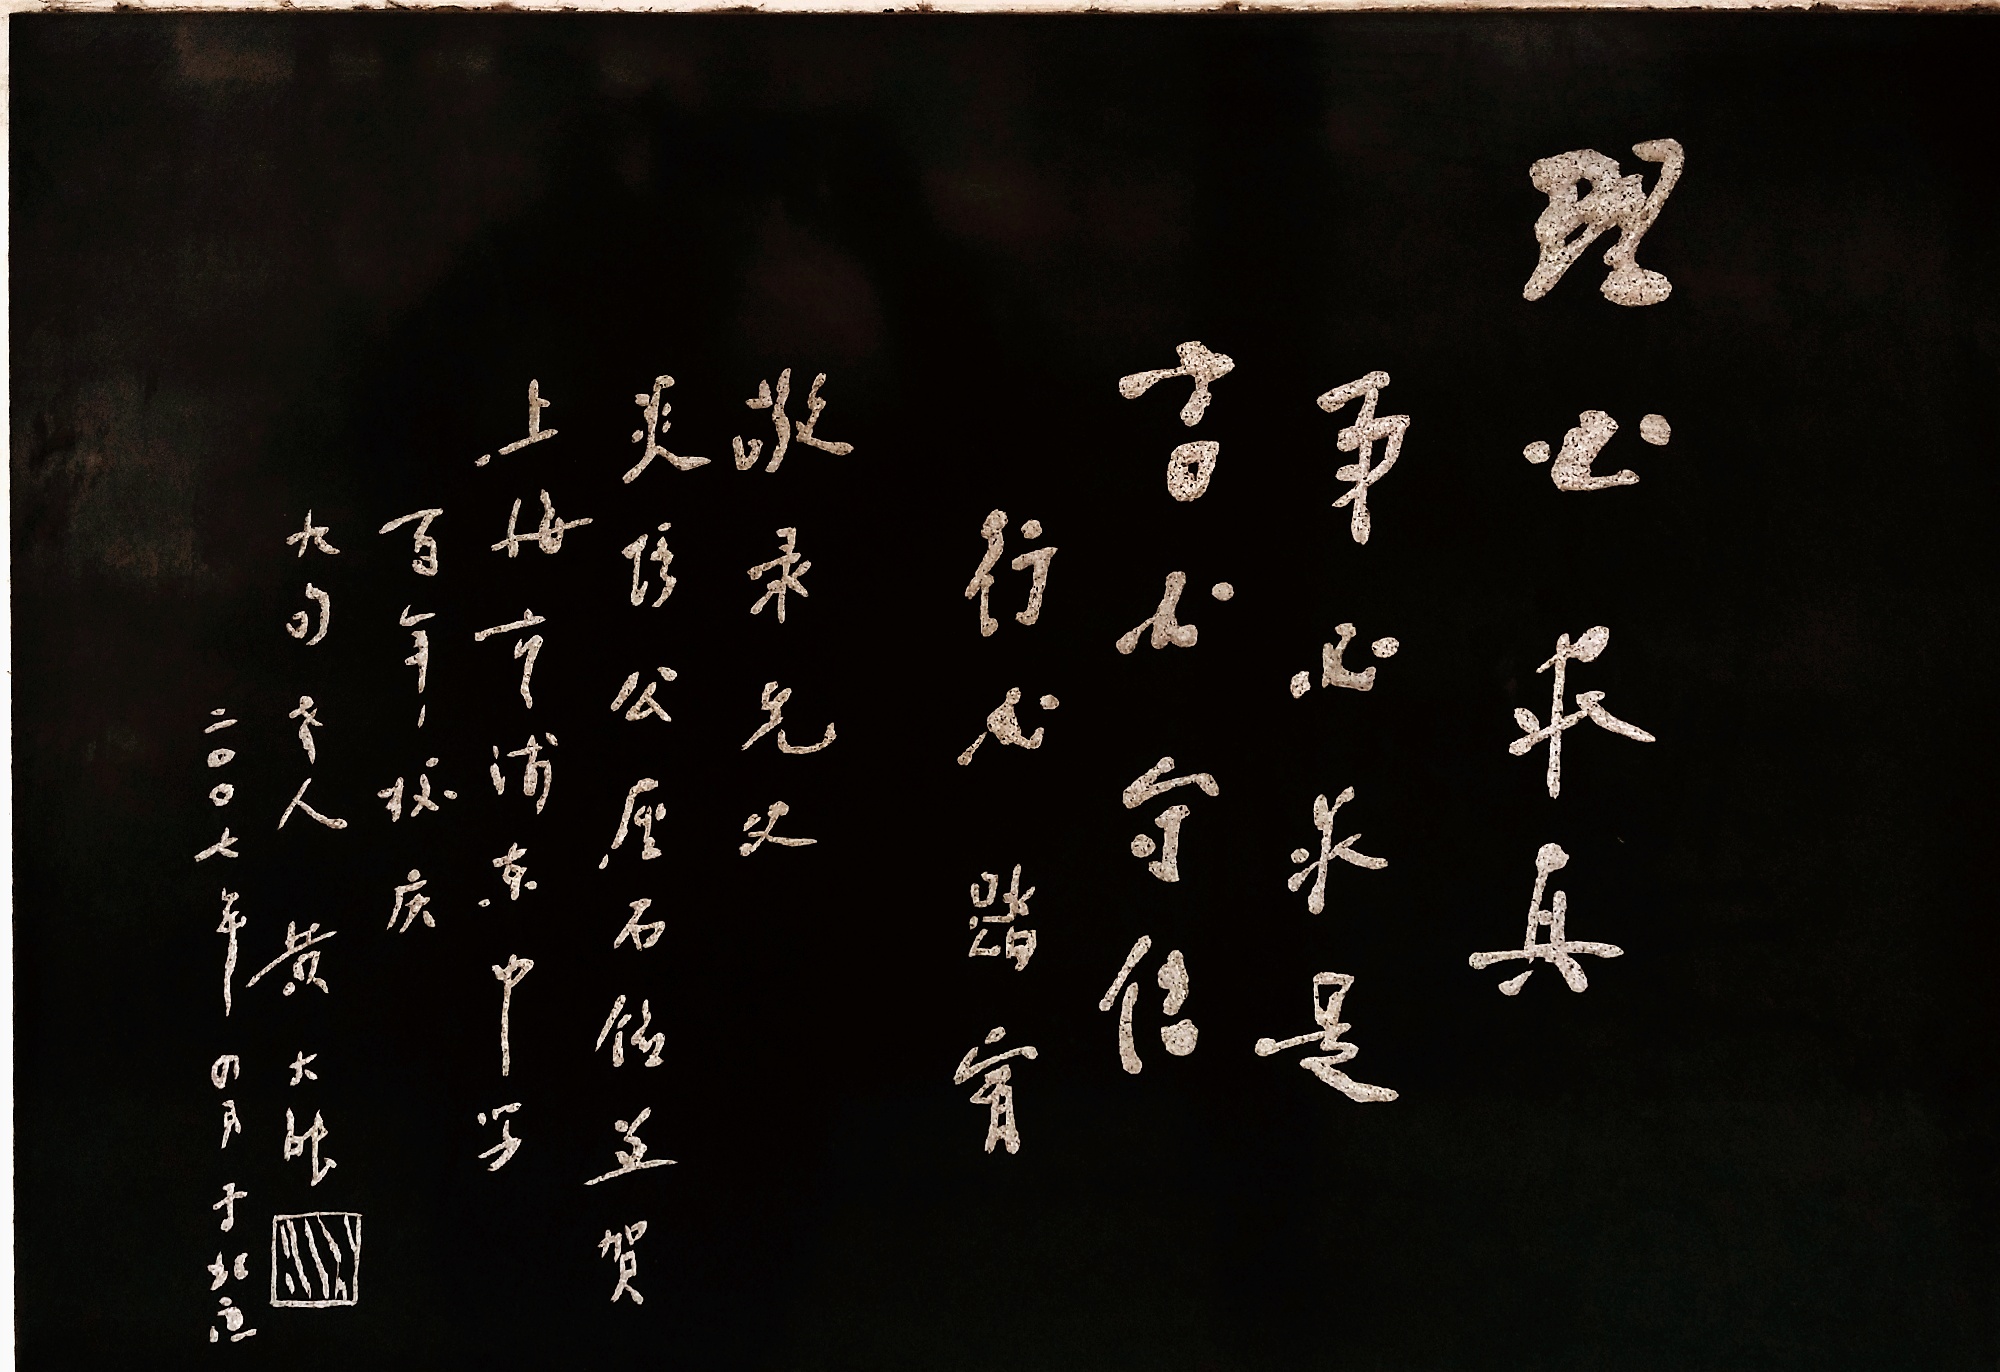 理必求真
事必求是
言必守信
行必踏實
敬录先父
炎培公座右铭並賀
上海市浦东中学
百年校庆
九旬老人 黄大能
二〇〇七年四月于北京